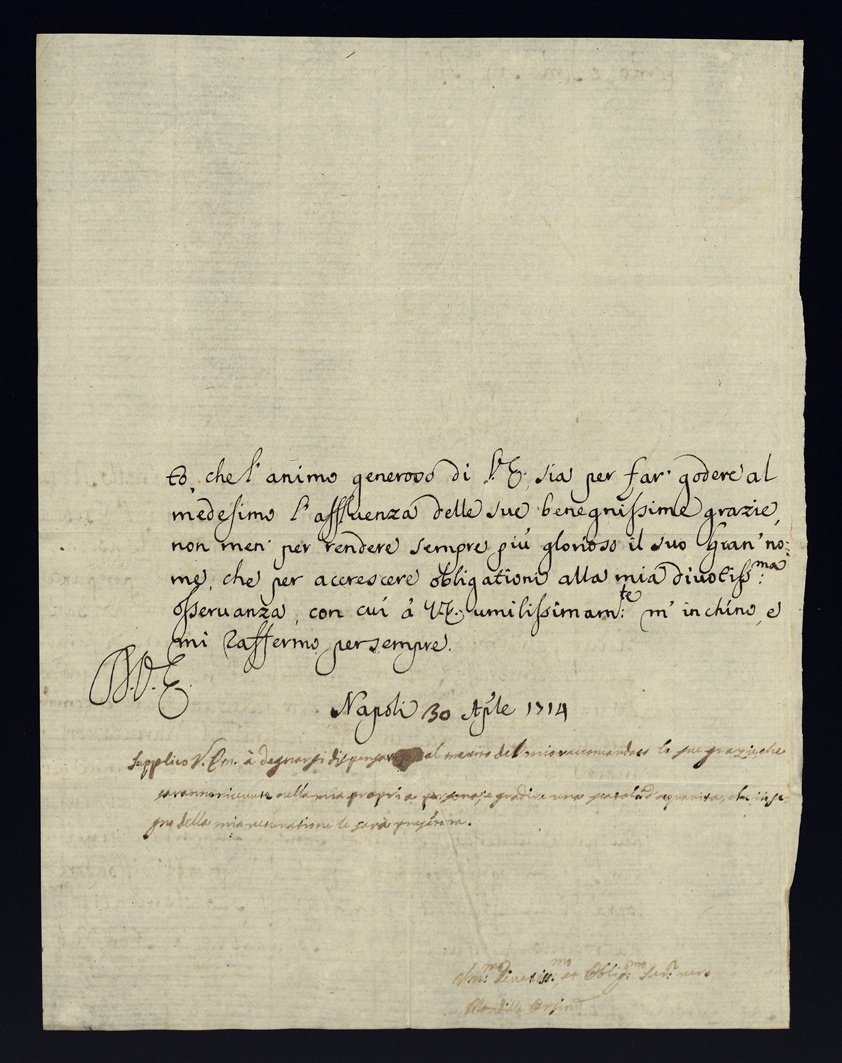 to, che l'animo generoso di V.E. sia per far' godere al
medesimo l'affluenza delle sue benegnissime grazie,
non men' per rendere sempre più glorioso il suo Gran' no:
me, che per accrescere obligationi alla mia divotiss:ma
osservanza, con cui à V.E. umilissimam:te m'inchino, e
mi raffermo per sempre.
D.V.E.
Napoli 30 Aple 1714
supplico V. Em. à degnarsi dispensar al del mio raccomandato le sue grazie, che
saranno ricevute nella mia propria persona, e gradire una d'acquavita, che in se-
gno della mia veneratione le sarà
Um:mo Divotiss:mo et Obligmo Ser:
Mondilla Orsini